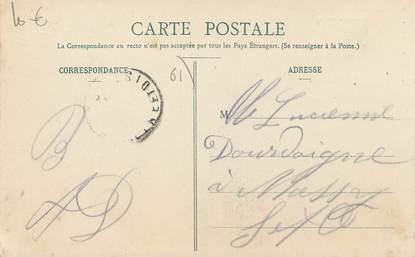 10 €
CARTE POSTALE
La Correspondance au recto n'est pas acceptée par tous les Pays Étrangers. (Se renseigner à la Poste.)
CORRESPONDANCE
ADRESSE
61
M Lucienne
Dourdoigne
à Massy
S et O
B
AD